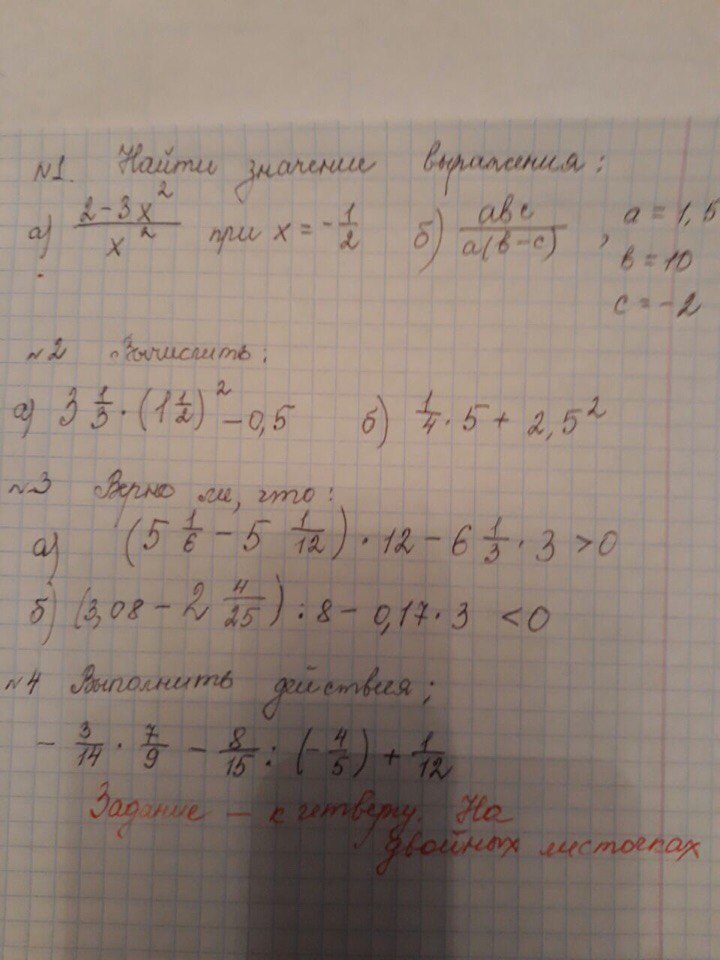 №1. Найти значение выражения:
а) (2-3x²)/x² при x = -1/2 б) abc/a(b-c), a = 1,5
b = 10
c = -2
№2 Вычислить:
а) 3 1/3 · (1 1/2)² - 0,5 б) 1/4 · 5 + 2,5²
№3 Верно ли, что:
а) (5 1/6 - 5 1/12) · 12 - 6 1/3 · 3 > 0
б) (3,08 - 2 4/25) : 8 - 0,17 · 3 < 0
№4 Выполнить действия;
- 3/14 · 7/9 - 8/15 : (-4/5) + 1/12
Задание - к четвергу. На
двойных листочках